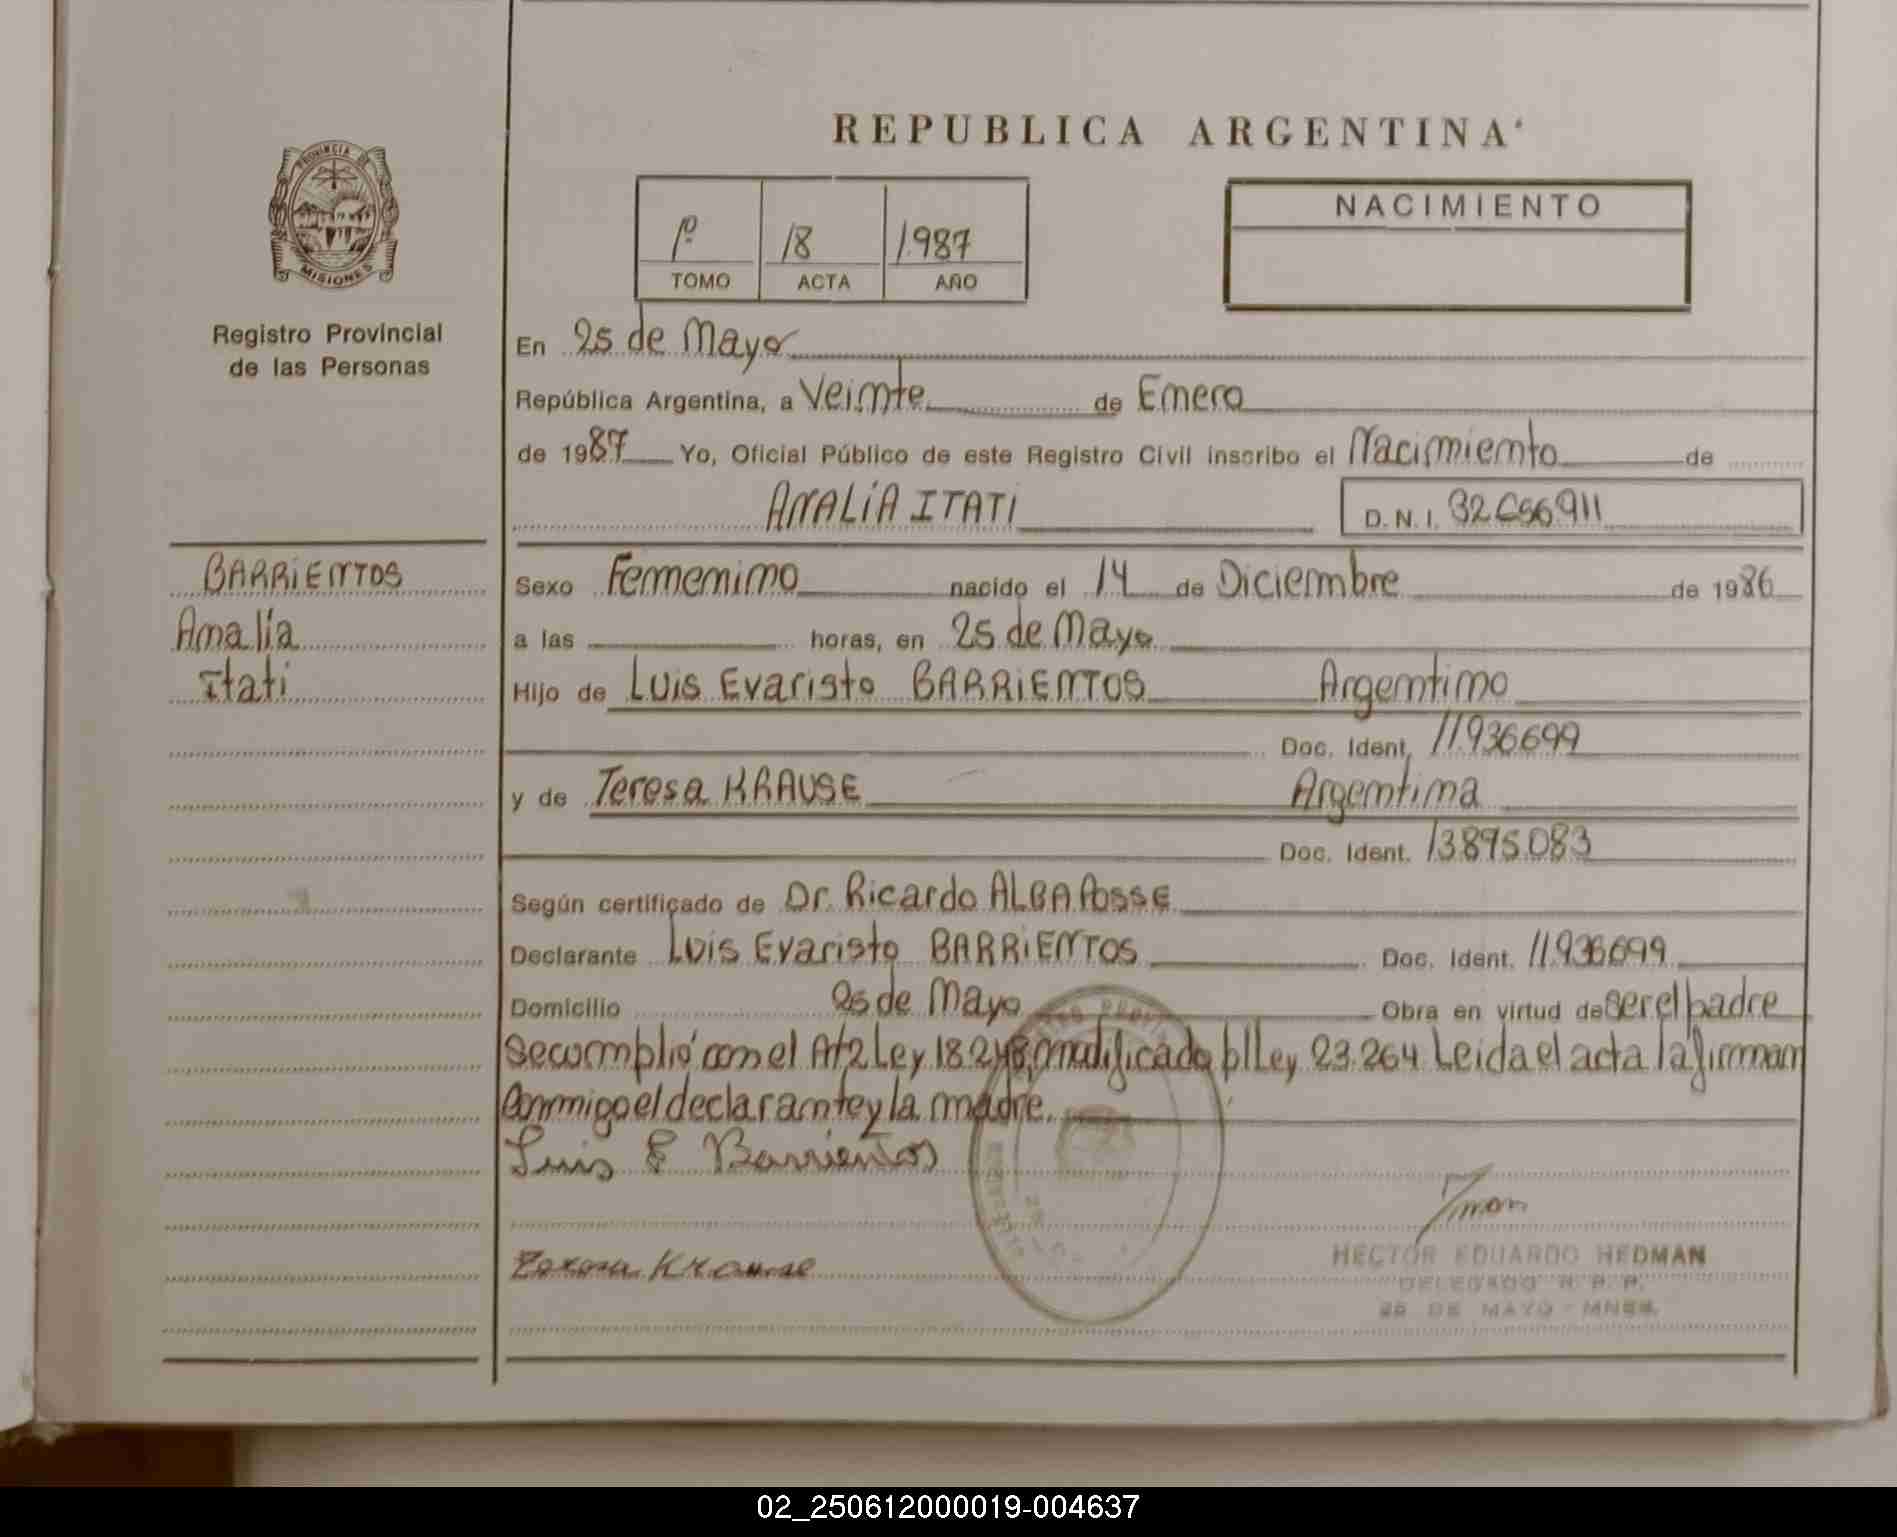 REPUBLICA ARGENTINA
PROVINCIA DE
MISIONES
Registro Provincial
de las Personas
1º 18 1.987
TOMO ACTA AÑO
NACIMIENTO
En 25 de Mayo
República Argentina, a Veinte de Enero
de 1987 Yo, Oficial Público de este Registro Civil inscribo el Nacimiento de
ANALÍA ITATI D.N.I. 32.656911
BARRIENTOS
Analía
Itati
Sexo Femenino nacido el 14 de Diciembre de 1986
a las horas, en 25 de Mayo
Hijo de Luis Evaristo BARRIENTOS Argentino
Doc. Ident. 11.936699
y de Teresa KRAUSE Argentina
Doc. Ident. 13.895.083
Según certificado de Dr. Ricardo ALBA POSSE
Declarante Luis Evaristo BARRIENTOS Doc. Ident. 11.936.699
Domicilio 25 de Mayo Obra en virtud de ser el padre
se cumplió con el At 2 Ley 18.248, modificado p/ Ley 23.264 Leida el acta la firman
conmigo el declarante y la madre.
Luis E Barrientos
Teresa Krause
HECTOR EDUARDO HEDMAN
DELEGADO R. P. P.
25 DE MAYO - MNES.
02_250612000019-004637